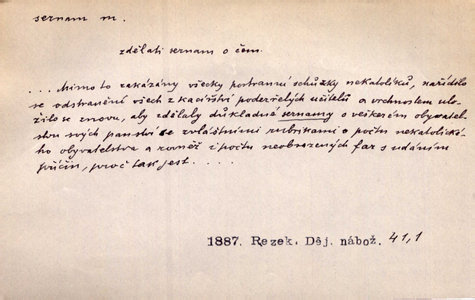 seznam m.
zdělati seznam o čem.
. . . Mimo to zakázány všecky postranní schůzky nekatolíků, nařídilo
se odstranění všech z kacířství podezřelých učitelů a vrchnostem ulo-
žilo se znovu, aby zdělaly důkladné seznamy o veškerém obyvatel-
stvu svých panství se zvláštními rubrikami o počtu nekatolické-
ho obyvatelstva a rovněž z počtu neobsazených far s udáním
příčin, proč tak jest. . . .
1887. Rezek. Děj. nábož. 41,1